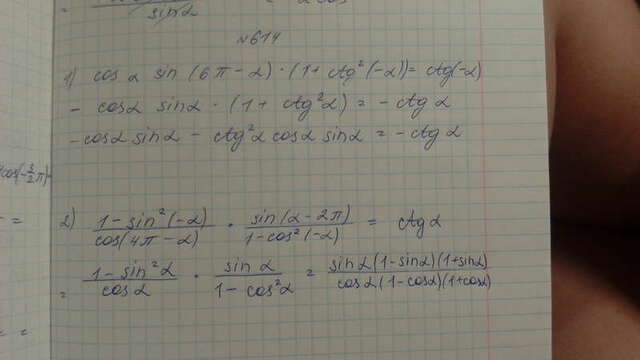 sin α
№614
1) cos α sin (6π - α) · (1 + ctg²(-α)) = ctg(-α)
- cos α sin α · (1 + ctg²α) = - ctg α
- cos α sin α - ctg²α cos α sin α = - ctg α
cos(-3/2 π)
=
2) (1 - sin²(-α))/(cos(4π - α)) · (sin(α - 2π))/(1 - cos²(-α)) = ctg α
= (1 - sin²α)/(cos α) · (sin α)/(1 - cos²α) = (sin α (1 - sin α)(1 + sin α))/(cos α (1 - cos α)(1 + cos α))
= =